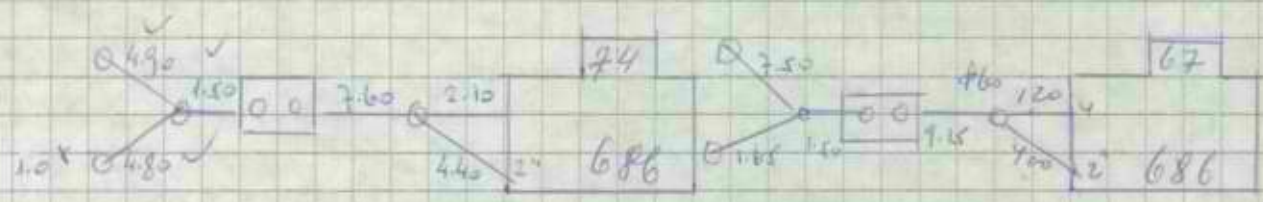 4.90
1.50
7.60
2.10
74
1.0
4.80
4.40
2"
686
7.50
1.65
1.50
9.15
1.20
4
67
4.00
2"
686